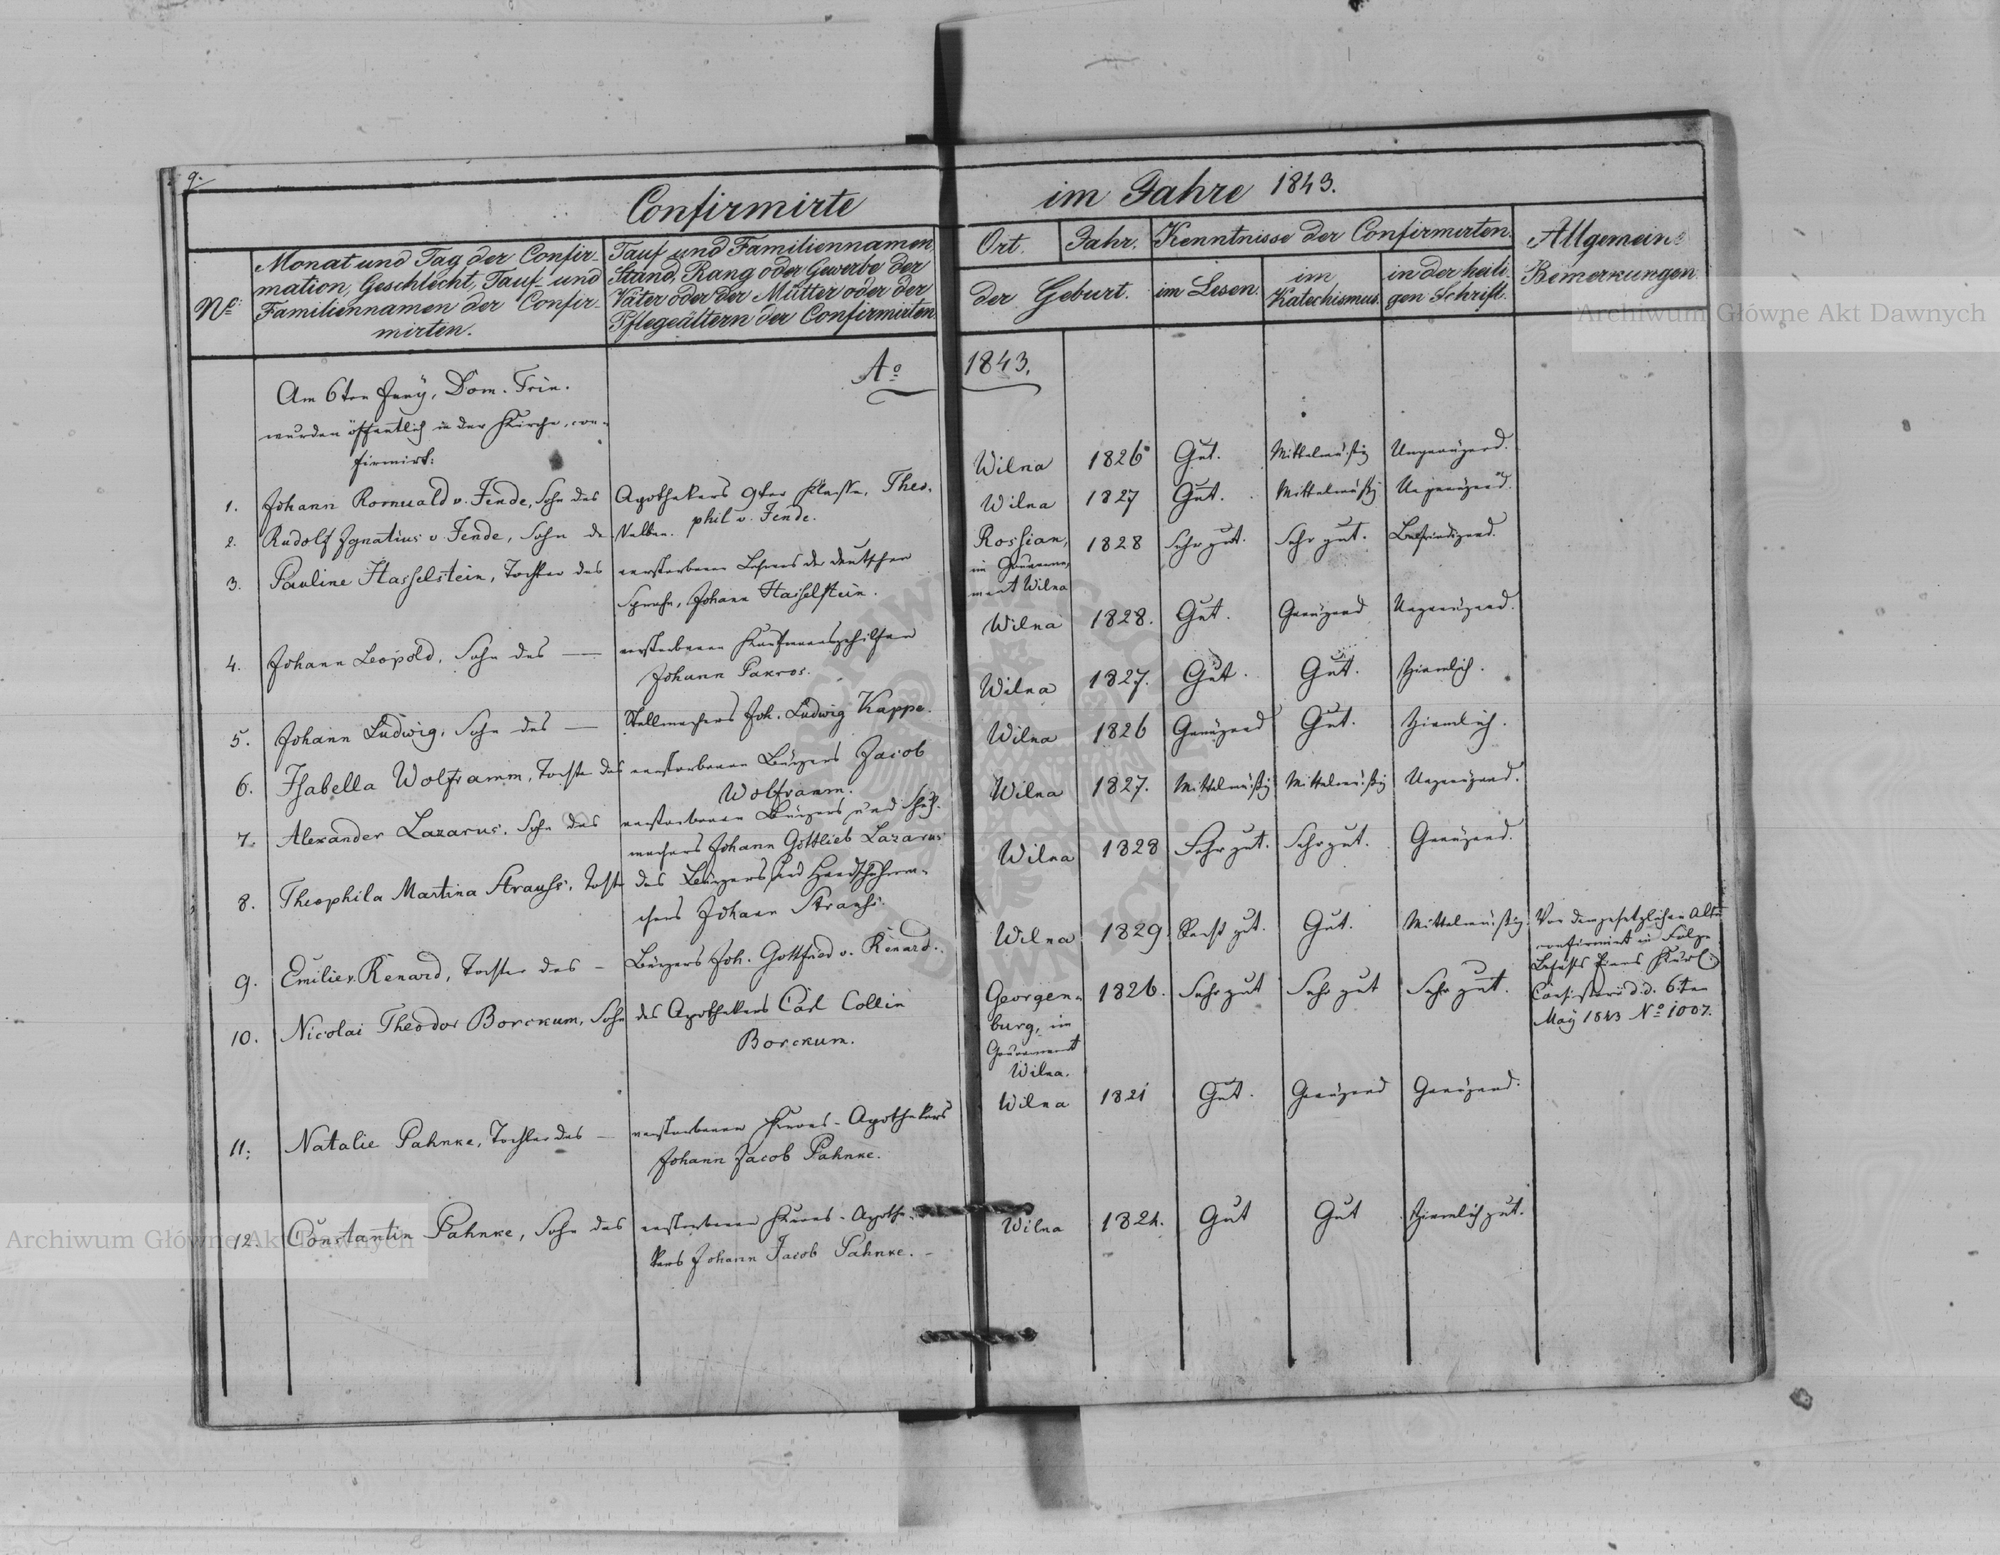 9.
Confirmirte im Jahre 1843.
No.
Monat und Tag der Confir-
mation, Geschlecht, Tauf- und
Familiennamen der Confir-
mirten.
Tauf und Familiennamen
Stand, Rang oder Gewerbe der
Väter oder der Mütter oder der
Pflegeältern der Confirmirten
Ort. Jahr.
der Geburt.
Kenntnisse der Confirmirten.
im Lesen.
im
Katechismus.
in der heili-
gen Schrift.
Allgemeine
Bemerkungen.
Archiwum Główne Akt Dawnych
Ao 1843.
Am 6ten Juny, Dom. Trin.
wurden öffentlich in der Kirche, con-
firmirt:
1. Johann Romuald v. Fende, Sohn des Apothekers 9ter Klasse, Theo- Wilna 1826 Gut. Mittelmäßig Ungenügend.
2. Rudolf Ignatius v. Fende, Sohn de Selben. phil v. Fende. Wilna 1827 Gut. Mittelmäßig Ungenügend.
3. Pauline Hasselstein, Tochter des verstorbenen Lehrers der deutschen Rossian, 1828 Sehr gut. Sehr gut. Befriedigend.
Sprache, Johann Hasselstein. im Gouverne-
ment Wilna
4. Johann Leopold, Sohn des — verstorbenen Kaufmannsgehilfen Wilna 1828. Gut. Genügend Ungenügend.
Johann Pakros.
5. Johann Ludwig, Sohn des — Stellmachers Joh. Ludwig Kappe. Wilna 1827. Gut. Gut. Ziemlich.
6. Isabella Wolframm, Tochter des verstorbenen Bürgers Jacob Wilna 1826 Genügend Gut. Ziemlich.
Wolframm.
7. Alexander Lazarus, Sohn des verstorbenen Bürgers und Schuh- Wilna 1827. Mittelmäßig Mittelmäßig Ungenügend.
machers Johann Gottlieb Lazarus
8. Theophila Martina Strauss, Tochter des Bürgers und Handschuhma- Wilna 1828 Sehr gut. Sehr gut. Genügend.
chers Johann Strauss.
9. Emilie v. Renard, Tochter des – Bürgers Joh. Gottfried v. Renard. Wilna 1829 Recht gut. Gut. Mittelmäßig. Vor dem gesetzlichen Alter
confirmirt in Folge
Befehls Eines Kurl.
Consistorii d. d. 6ten
May 1843 No 1007.
10. Nicolai Theodor Borckum, Sohn des Apothekers Carl Collin Georgen- 1826. Sehr gut Sehr gut Sehr gut.
Borckum. burg, im
Gouvernement
Wilna.
11. Natalie Pahnke, Tochter des — verstorbenen Kreis-Apothekers Wilna 1821 Gut. Genügend Genügend.
Johann Jacob Pahnke.
12. Constantin Pahnke, Sohn des verstorbenen Kreis-Apothe- Wilna 1824. Gut Gut Ziemlich gut.
kers Johann Jacob Pahnke. –
Archiwum Główne Akt Dawnych